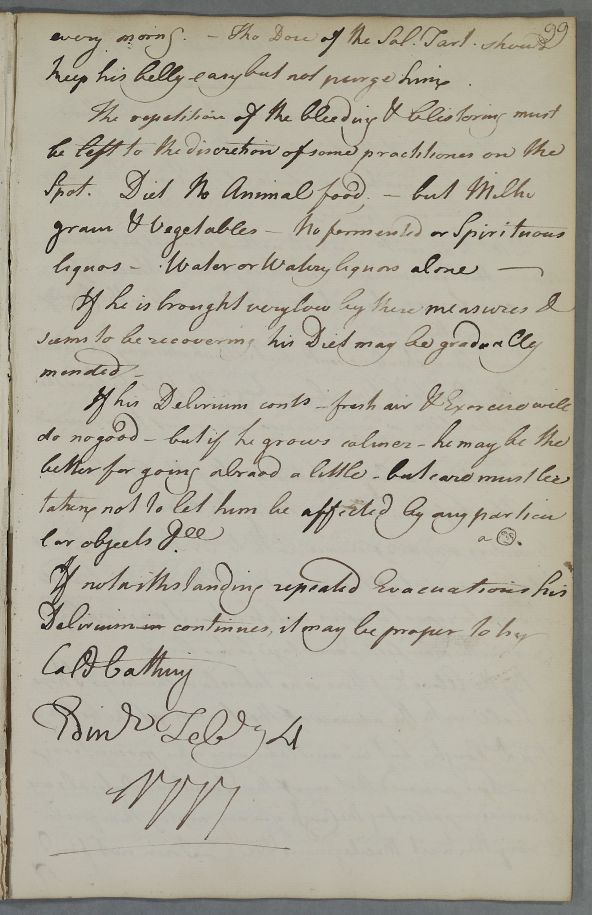 99
every morng. – The Dose of the Sal. Tart. should
keep his belly easy but not purge him.
The repetition of the bleeding & blistering must
be left to the discretion of some practitioner on the
Spot. Diet No Animal food. – but Milk
grain & Vegetables – No fermented or Spirituous
liquors – Water or Watery liquors alone —
If he is brought very low by these measures &
seems to be recovering his Diet may be gradually
mended –
If his Delirium conts – fresh air & Exercise will
do no good – but if he grows calmer – he may be the
better for going abroad a little – but care must be
taken not to let him be affected by any particu
lar objects
If notwithstanding repeated Evacuations his
Delirium in continues, it may be proper to try
Cold bathing
Edinr Feby 4
1777